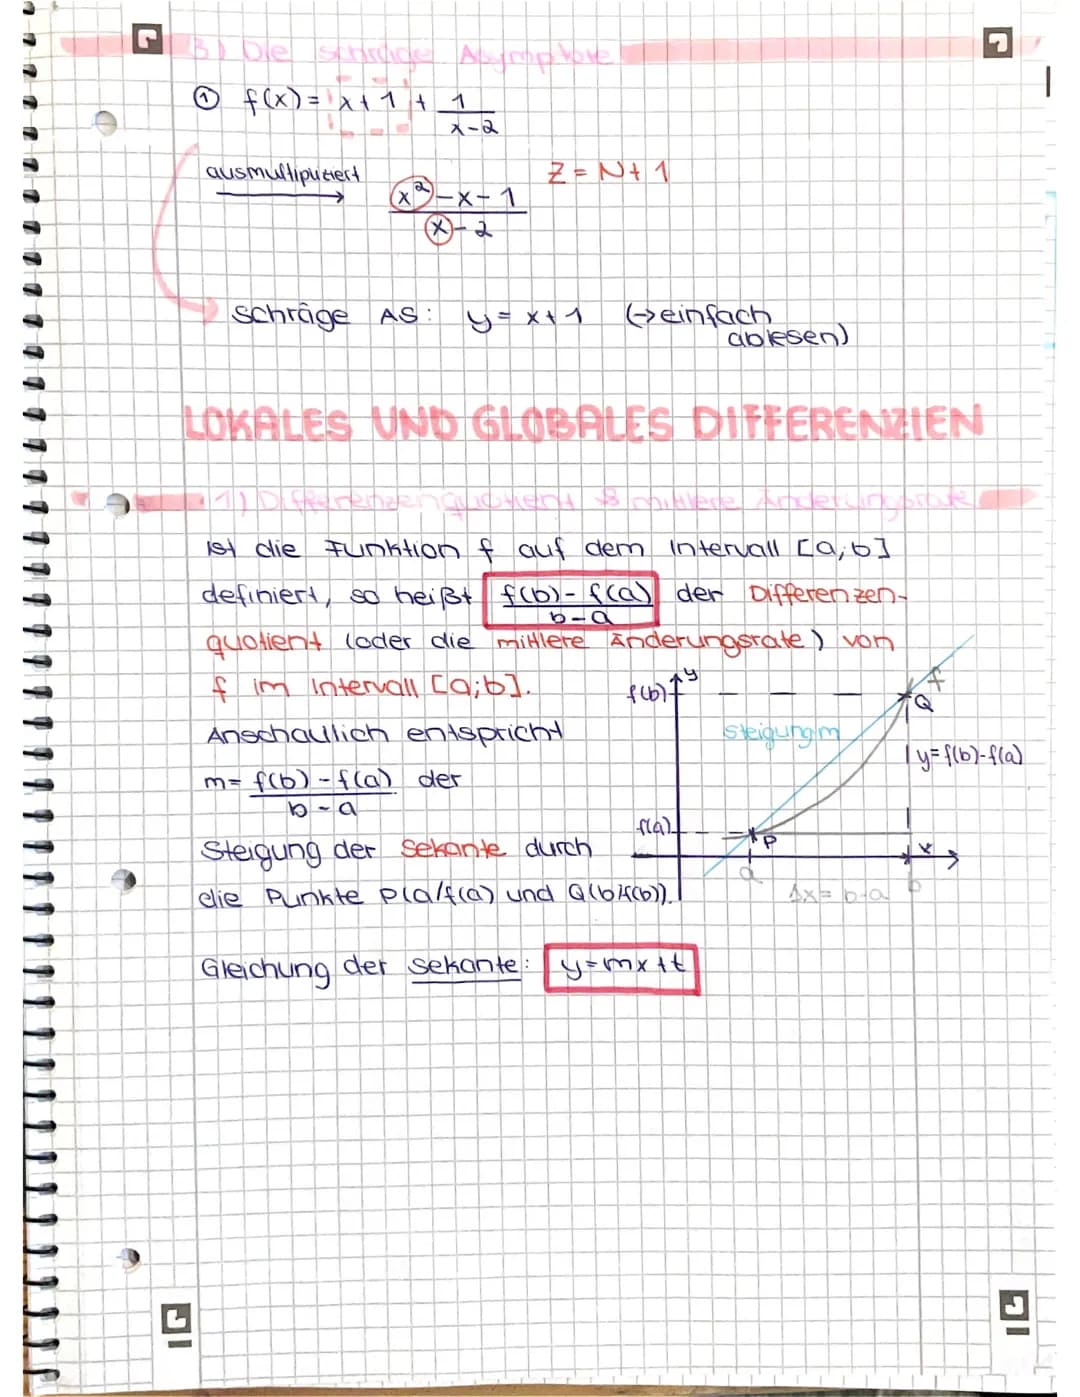 3) Die schräge Asymptote
① f(x) = x + 1 + 1/(x-2)
ausmultipliziert
Z = N + 1
(x² - x - 1)/(x - 2)
schräge AS: y = x + 1 (→ einfach
ablesen)
LOKALES UND GLOBALES DIFFERENZIEN
1) Differenzenquotient & mittlere Änderungsrate
Ist die Funktion f auf dem Intervall [a;b]
definiert, so heißt (f(b) - f(a))/(b - a) der Differenzen-
quotient (oder die mittlere Änderungsrate) von
f im Intervall [a;b].
Anschaulich entspricht
m = (f(b) - f(a))/(b - a) der
Steigung der Sekante durch
die Punkte P(a/f(a) und Q(b/f(b)).
f(b)
y
f
Q
Steigung m
y = f(b)-f(a)
f(a)
P
x
a
b
Δx = b-a
Gleichung der Sekante: y = mx + t